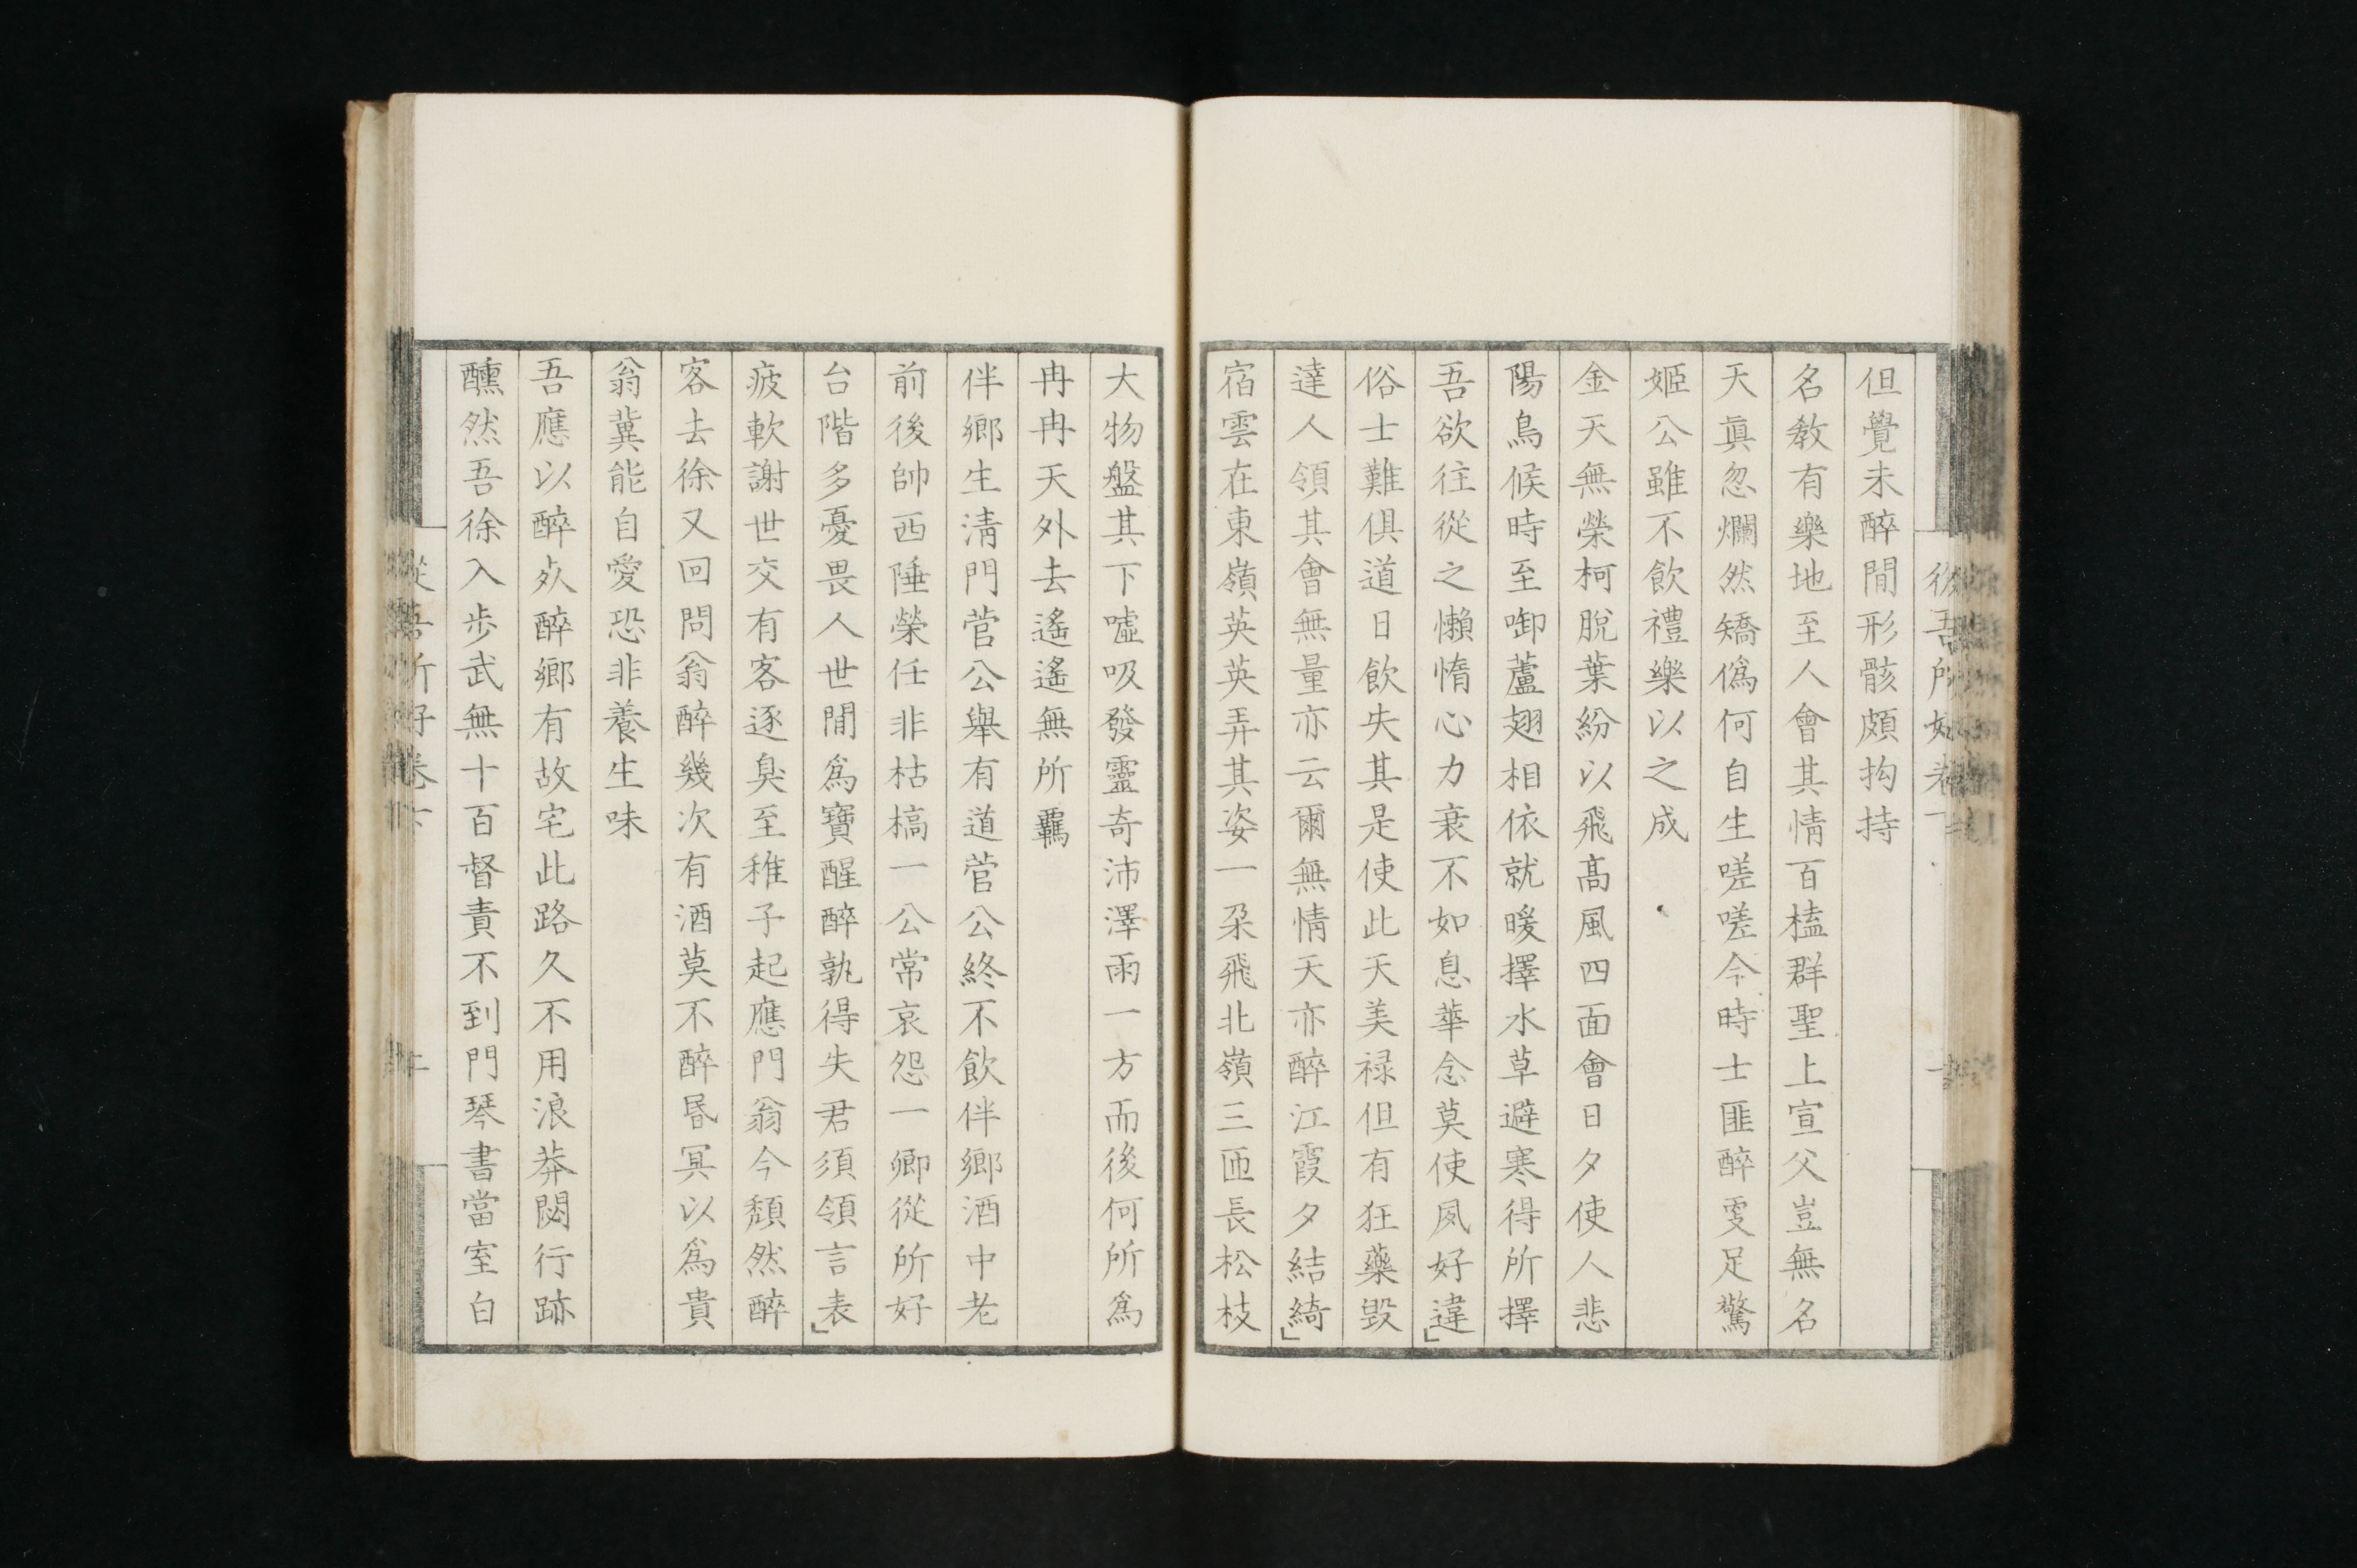 但覺未醉間形骸頗拘持
名教有樂地至人會其情百榼群聖上宣父豈無名
天眞忽爛然矯僞何自生嗟嗟今時士匪醉㕛足驚
姬公雖不飲禮樂以之成
金天無榮柯脫葉紛以飛高風四面會日夕使人悲
陽烏候時至啣蘆翅相依就暖擇水草避寒得所擇
吾欲往從之懶惰心力衰不如息華念莫使夙好違」
俗士難俱道日飲失其是使此天美祿但有狂藥毀
達人領其會無量亦云爾無情天亦醉江霞夕結綺」
宿雲在東嶺英英弄其姿一朶飛北嶺三匝長松枝
大物盤其下噓吸發靈奇沛澤雨一方而後何所爲
冉冉天外去遙遙無所羈
伴鄉生淸門菅公擧有道菅公終不飲伴鄉酒中老
前後帥西陲榮任非枯槁一公常哀怨一卿從所好
台階多憂畏人世間爲寶醒醉孰得失君須領言表」
疲軟謝世交有客逐臭至稚子起應門翁今頹然醉
客去徐又回問翁醉幾次有酒莫不醉昏冥以爲貴
翁冀能自愛恐非養生味
吾應以醉㱕醉鄉有故宅此路久不用浪莽閟行跡
醺然吾徐入步武無十百督責不到門琴書當室白
從吾所好卷下